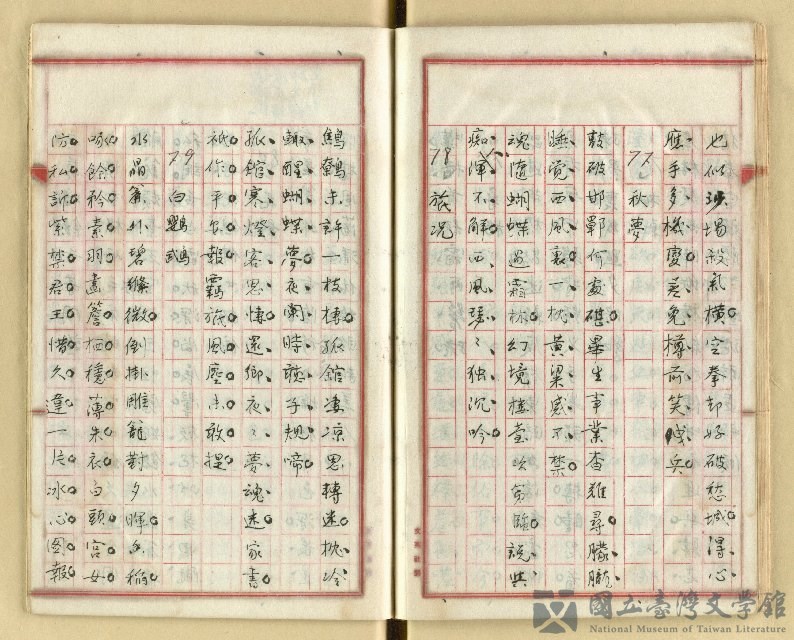 也似沙場殺氣橫空拳却好破愁城得心
應手多機變差免樽前笑曳兵
77 秋夢
鼓破邯鄲何處碪畢生事業杳難尋朦朧
睡覺西風裏一枕黃粱感不禁
魂隨蝴蝶過霜林幻境樓臺次第臨說與
痴渾不解西風瑟々独沉吟
78 旅況
鷦鷯未許一枝棲孤館凄凉思轉迷枕冷
輙醒蝴蝶夢夜闌時聴子規啼
孤館寒燈客思悽還鄉夜々夢魂迷家書
祇作平安報羈旅風塵未敢提
79 白鸚鵡
水晶簾外碧縧微倒掛雕籠對夕暉香稻
啄餘矜素羽畫簷栖穩薄朱衣白頭宮女
防私訴紫禁君王惜久違一片冰心图報
國立臺灣文學館
National Museum of Taiwan Literature